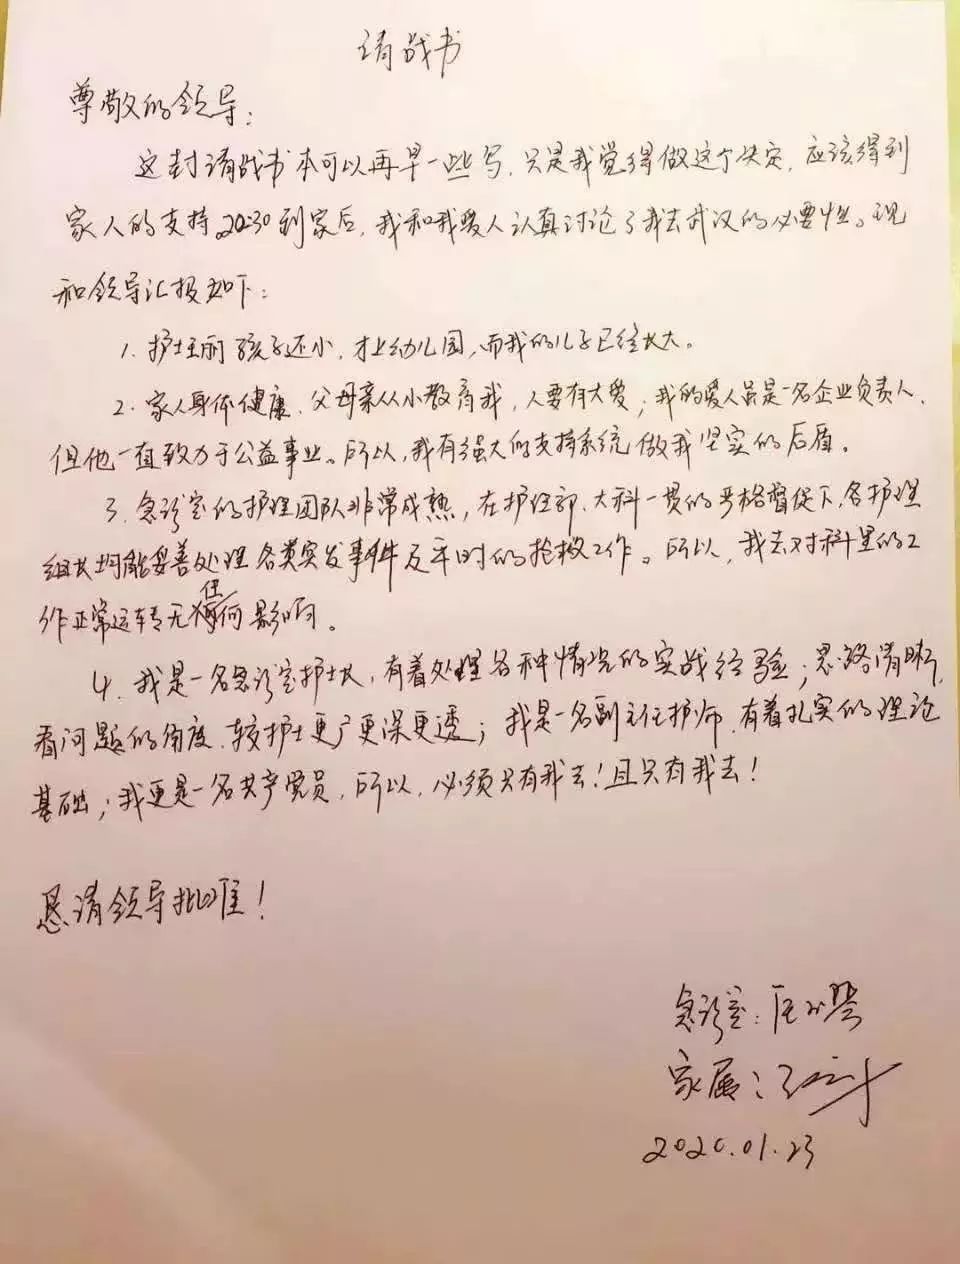 请战书
尊敬的领导：
这封请战书本可以再早一些写，只是我觉得做这个决定，应该得到
家人的支持。20:30到家后，我和我爱人认真讨论了我去武汉的必要性。现
和领导汇报如下：
1. 护士丽孩子还小，才上幼儿园，而我的儿子已经长大。
2. 家人身体健康，父母亲从小教育我，人要有大爱；我的爱人虽是一名企业负责人，
但他一直致力于公益事业。所以，我有强大的支持系统做我坚实的后盾。
3. 急诊室的护理团队非常成熟，在护理部、大科一贯的严格督促下，各护理
组长均能妥善处理各类突发事件及平时的抢救工作。所以，我去对科里的工
作正常运转无任何影响。
4. 我是一名急诊室护士长，有着处理各种情况的实战经验；思路清晰，
看问题的角度，较护士更广更深更透；我是一名副主任护师，有着扎实的理论
基础；我更是一名共产党员，所以，必须只有我去！且只有我去！
恳请领导批准！
急诊室：
家属：
2020.01.23